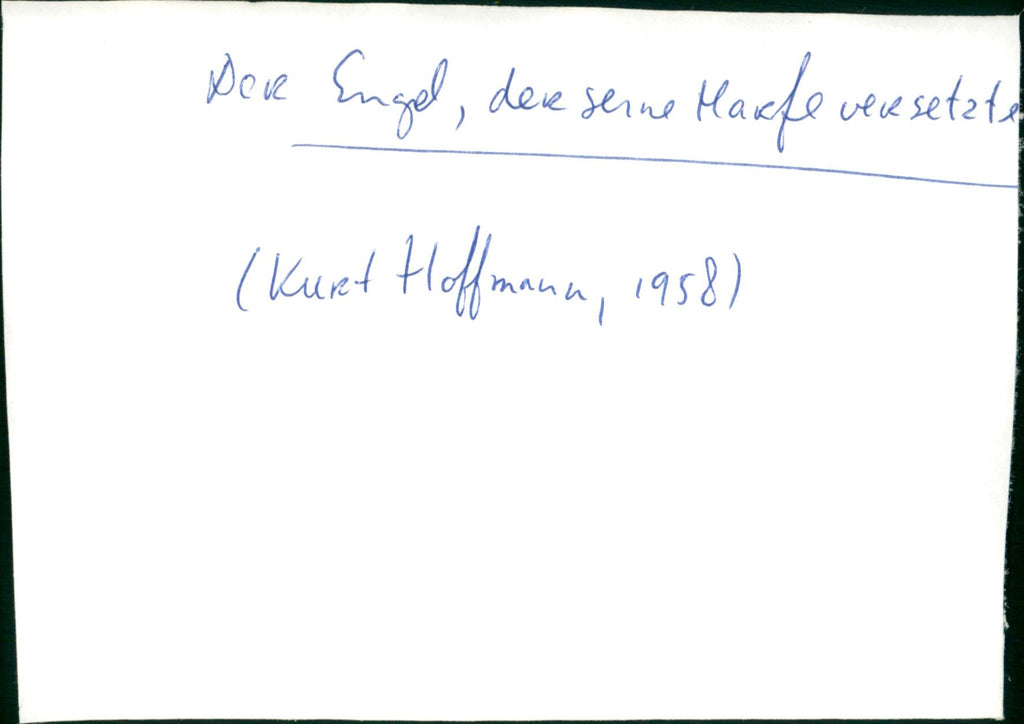 Der Engel, der seine Harfe versetzte
(Kurt Hoffmann, 1958)